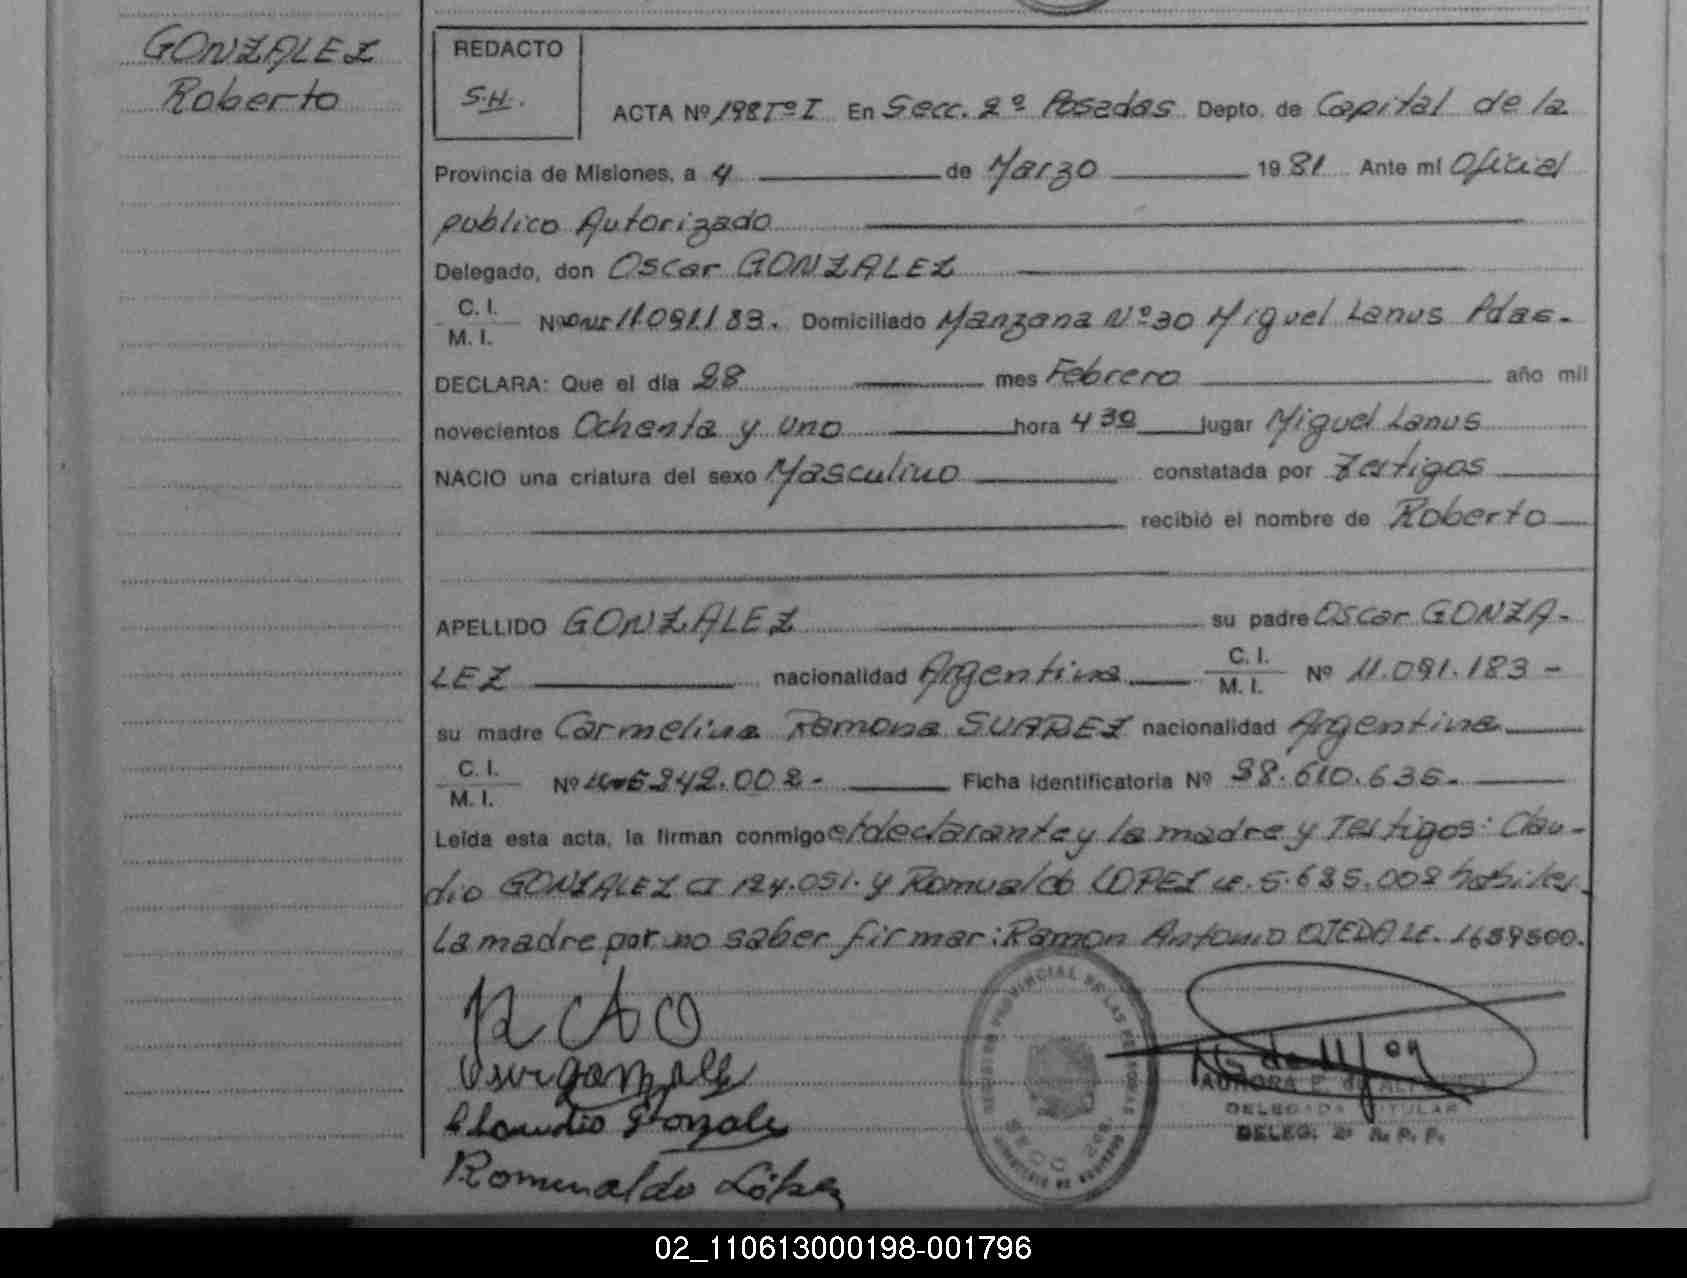 GONZALEZ
Roberto
REDACTO
S.H.
ACTA Nº 198 Tº I En Secc. 2º Posadas Depto. de Capital de la
Provincia de Misiones, a 4 de Marzo 1981 Ante mi Oficial
publico Autorizado
Delegado, don Oscar GONZALEZ
C. I.
M. I. Nº 11.091.183. Domiciliado Manzana Nº 30 Miguel Lanus Pdas.
DECLARA: Que el día 28 mes Febrero año mil
novecientos Ochenta y uno hora 4 30 lugar Miguel Lanus
NACIO una criatura del sexo Masculino constatada por Testigos
recibió el nombre de Roberto
APELLIDO GONZALEZ su padre Oscar GONZA-
LEZ nacionalidad Argentina C. I.
M. I. Nº 11.091.183 -
su madre Carmelina Ramona SUAREZ nacionalidad Argentina
C. I.
M. I. Nº 6.242.002 - Ficha Identificatoria Nº 38.610.635.-
Leída esta acta, la firman conmigo el declarante y la madre y Testigos: Clau-
dio GONZALEZ CI 124.051. y Romualdo LOPEZ LE. 5.685.002 habiles.
La madre por no saber firmar: Ramon Antonio OJEDA LE. 1659500.
R A O
Oscar gonzalez
Claudio Gonzalez
Romualdo López
REGISTRO PROVINCIAL DE LAS PERSONAS
SECC 2da.
AURORA F. de
DELEGADA TITULAR
DELEG. 2ª R. P. P.
02_110613000198-001796